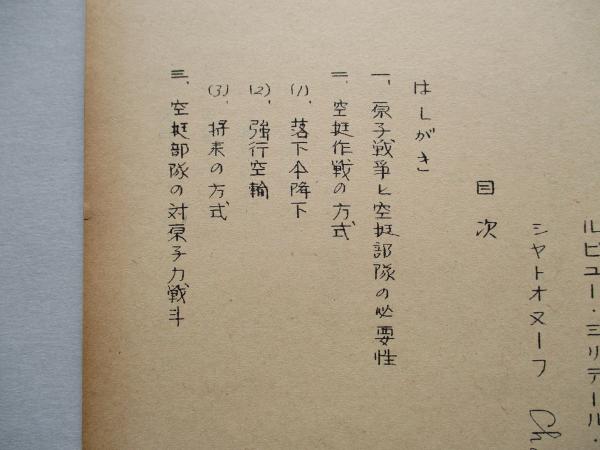 ルビュー・ミリテール・
シャトオヌーフ Ch
目次
はしがき
一、原子戦争と空挺部隊の必要性
二、空挺作戦の方式
(1)、落下傘降下
(2)、強行空輸
(3)、将来の方式
三、空挺部隊の対原子力戦斗